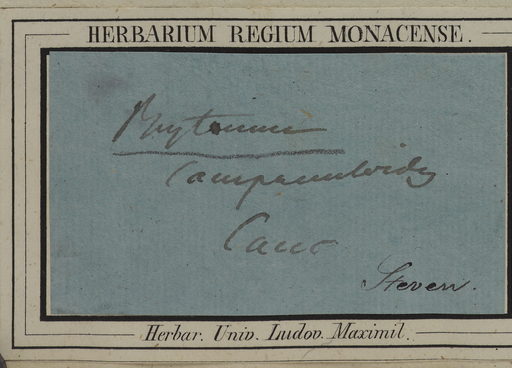 HERBARIUM REGIUM MONACENSE.
Phyteuma
Campanuloides
Cauc
Steven.
Herbar. Univ. Ludov. Maximil.